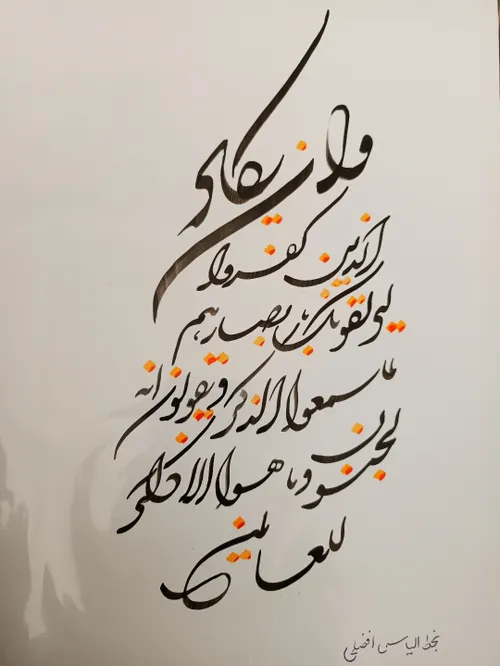 وان یکاد
الذین کفروا
لیزلقونک بابصارهم
لما سمعوا الذکر و یقولون انه
لمجنون و ما هو الا ذکر
للعالمین
بخط الیاس افضلی